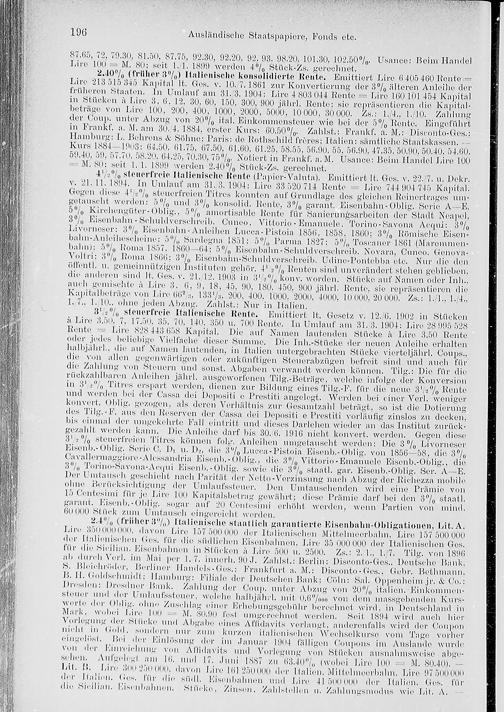 196 Ausländische Staatspapiere, Fonds etc.
87.65, 72, 79.30, 81.50, 87.75, 92.30, 92.20, 92, 93, 98.20, 101.30, 102.50%. Usance: Beim Handel
Lire 100 = M. 80; seit 1./1. 1899 werden 4% Stück-Zs. gerechnet.
2.40% (früher 3%) Italienische konsolidierte Rente. Emittiert Lire 6 405 460 Rente =
Lire 213 515 345 Kapital lt. Ges. v. 10./7. 1861 zur Konvertierung der 3% älteren Anleihe der
früheren Staaten. In Umlauf am 31./3. 1904: Lire 4 803 044 Rente = Lire 160 101 454 Kapital
in Stücken à Lire 3, 6, 12, 30, 60, 150, 300, 900 jährl. Rente; sie repräsentieren die Kapital-
beträge von Lire 100, 200, 400, 1000, 2000, 5000, 10 000, 30 000. Zs.: 1./4., 1./10. Zahlung
der Coup. unter Abzug von 20% ital. Einkommensteuer wie bei der 5% Rente. Eingeführt
in Frankf. a. M. am 30./4. 1884, erster Kurs: 60.50%. Zahlst.: Frankf. a. M.: Disconto-Ges.;
Hamburg: L. Behrens & Söhne; Paris: de Rothschild frères; Italien: sämtliche Staatskassen.
Kurs 1884—1903: 64.50, 61.75, 67.50, 61.60, 61.25, 58.55, 56.90, 55, 56.90, 47.35, 50.90, 50.40, 54.60,
59.40, 59, 57.70, 58.20, 64.25, 70.30, 75%. Notiert in Frankf. a. M. Usance: Beim Handel Lire 100
= M. 80; seit 1./1. 1899 werden 2.40% Stück-Zs. gerechnet.
4½% steuerfreie Italienische Rente (Papier-Valuta). Emittiert lt. Ges. v. 22./7. u. Dekr.
v. 21./11. 1894. In Umlauf am 31./3. 1904: Lire 33 520 714 Rente = Lire 744 904 745 Kapital.
Gegen diese 4½% steuerfreien Titres konnten auf Grundlage des gleichen Reinertrages um-
getauscht werden: 5% und 3% konsolid. Rente, 3% garant. Eisenbahn-Oblig. Serie A—E,
5% Kirchengüter-Oblig., 5% amortisable Rente für Sanierungsarbeiten der Stadt Neapel,
3% Eisenbahn-Schuldverschreib. Cuneo, Vittorio-Emanuele, Torino-Savona Acqui; 3%
Livorneser; 3% Eisenbahn-Anleihen Lucca-Pistoia 1856, 1858, 1860; 3% Römische Eisen-
bahn-Anleihescheine; 5% Sardegna 1851; 5% Parma 1827; 5% Toscaner 1861 (Maremmen-
bahn); 5% Roma 1857, 1860—64; 5% Eisenbahn-Schuldverschreib. Novara, Cuneo, Genova-
Voltri; 3% Roma 1866; 3% Eisenbahn-Schuldverschreib. Udine-Pontebba etc. Nur die den
öffentl. u. gemeinnützigen Instituten gehör. 4½% Renten sind unverändert stehen geblieben,
die anderen sind lt. Ges. v. 21./12. 1903 in 3½% konv. worden. Stücke auf Namen oder Inh.,
auch gemischte à Lire 3, 6, 9, 18, 45, 90, 180, 450, 900 jährl. Rente, sie repräsentieren die
Kapitalbeträge von Lire 66⅔, 133⅓, 200, 400, 1000, 2000, 4000, 10 000, 20 000. Zs.: 1./1., 1./4.,
1./7., 1./10. ohne jeden Abzug. Zahlst.: Nur in Italien.
3½% steuerfreie Italienische Rente. Emittiert lt. Gesetz v. 12./6. 1902 in Stücken
à Lire 3.50, 7, 17.50, 35, 70, 140, 350 u. 700 Rente. In Umlauf am 31./3. 1904: Lire 28 995 528
Rente = Lire 828 443 658 Kapital. Die auf Namen lautenden Stücke à Lire 3.50 Rente
oder jedes beliebige Vielfache dieser Summe. Die Inh.-Stücke der neuen Anleihe erhalten
halbjährl., die auf Namen lautenden, in Italien untergebrachten Stücke vierteljährl. Coups.,
die von allen gegenwärtigen oder zukünftigen Steuerabzügen befreit sind und auch für
die Zahlung von Steuern und sonst. Abgaben verwandt werden können. Tilg.: Die für die
rückzahlbaren Anleihen jährl. ausgeworfenen Tilg.-Beträge, welche infolge der Konversion
in 3½% Titres erspart werden, dienen zur Bildung eines Tilg.-F. für die neue 3½% Rente
und werden bei der Cassa dei Depositi e Prestiti angelegt. Werden bei einer Verl. weniger
konvert. Oblig. gezogen, als deren Verhältnis zur Gesamtzahl beträgt, so ist die Dotierung
des Tilg.-F. aus den Reserven der Cassa dei Depositi e Prestiti vorläufig zinslos zu decken,
bis einmal der umgekehrte Fall eintritt und dieses Darlehen wieder an das Institut zurück-
gezahlt werden kann. Die Anleihe darf bis 30./6. 1916 nicht konvert. werden. Gegen diese
3½% steuerfreien Titres können folg. Anleihen umgetauscht werden: Die 3% Livorneser
Eisenb.-Oblig. Serie C, D₁ u. D₂, die 3% Lucca-Pistoia Eisenb.-Oblig. von 1856—58, die 3%
Cavallermaggiore-Alessandria Eisenb.-Oblig., die 3% Vittorio-Emanuele Eisenb.-Oblig., die
3% Torino-Savona-Acqui Eisenb.-Oblig. sowie die 3% staatl. gar. Eisenb.-Oblig. Ser. A—E.
Der Umtausch geschieht nach Parität der Netto-Verzinsung nach Abzug der Richezza mobile
ohne Berücksichtigung der Umlaufssteuer. Den Umtauschenden wird eine Prämie von
15 Centesimi für je Lire 100 Kapitalsbetrag gewährt; diese Prämie darf bei den 3% staatl.
garant. Eisenb.-Oblig. sogar auf 20 Centesimi erhöht werden, wenn Partien von mind.
60 000 Stück zum Umtausch eingereicht werden.
2.4% (früher 3%) Italienische staatlich garantierte Eisenbahn-Obligationen, Lit. A.
Lire 350 000 000, davon Lire 157 500 000 der Italienischen Mittelmeerbahn, Lire 157 500 000
der Italienischen Ges. für die südlichen Eisenbahnen, Lire 35 000 000 der Italienischen Ges.
für die Sicilian. Eisenbahnen in Stücken à Lire 500 u. 2500. Zs.: 2./1., 1./7. Tilg. von 1896
ab durch Verl. im Mai per 1./7. innerh. 90 J. Zahlst.: Berlin: Disconto-Ges., Deutsche Bank,
S. Bleichröder, Berliner Handels-Ges.; Frankfurt a. M.: Disconto-Ges., Gebr. Bethmann,
B. H. Goldschmidt; Hamburg: Filiale der Deutschen Bank; Cöln: Sal. Oppenheim jr. & Co.;
Dresden: Dresdner Bank. Zahlung der Coup. unter Abzug von 20% italien. Einkommen-
steuer und der Umlaufssteuer, welche halbjährl. mit 0,6‰ von dem massgebenden Kurs-
werte der Oblig. ohne Zuschlag einer Erhebungsgebühr berechnet wird, in Deutschland in
Mark, wobei Lire 100 = M. 80,90 fest umgerechnet werden. Seit 1894 wird auch hier
Vorlegung der Stücke und Abgabe eines Affidavits verlangt, andernfalls wird der Coupon
nicht in Gold, sondern nur zum kurzen italienischen Wechselkurse vom Tage vorher
eingelöst. Bei der Einlösung der im Januar 1904 fälligen Coupons im Auslande wurde
von der Einreichung von Affidavits und Vorlegung von Stücken ausnahmsweise abge-
sehen. Aufgelegt am 16. und 17. Juni 1887 zu 63.40% (wobei Lire 100 = M. 80.40). —
Lit. B. Lire 300 250 000, davon Lire 161 250 000 der Italien. Mittelmeerbahn, Lire 97 500 000
der Italien. Ges. für die südl. Eisenbahnen und Lire 41 500 000 der Italien. Ges. für
die Sicilian. Eisenbahnen. Stücke, Zinsen, Zahlstellen u. Zahlungsmodus wie Lit. A. —